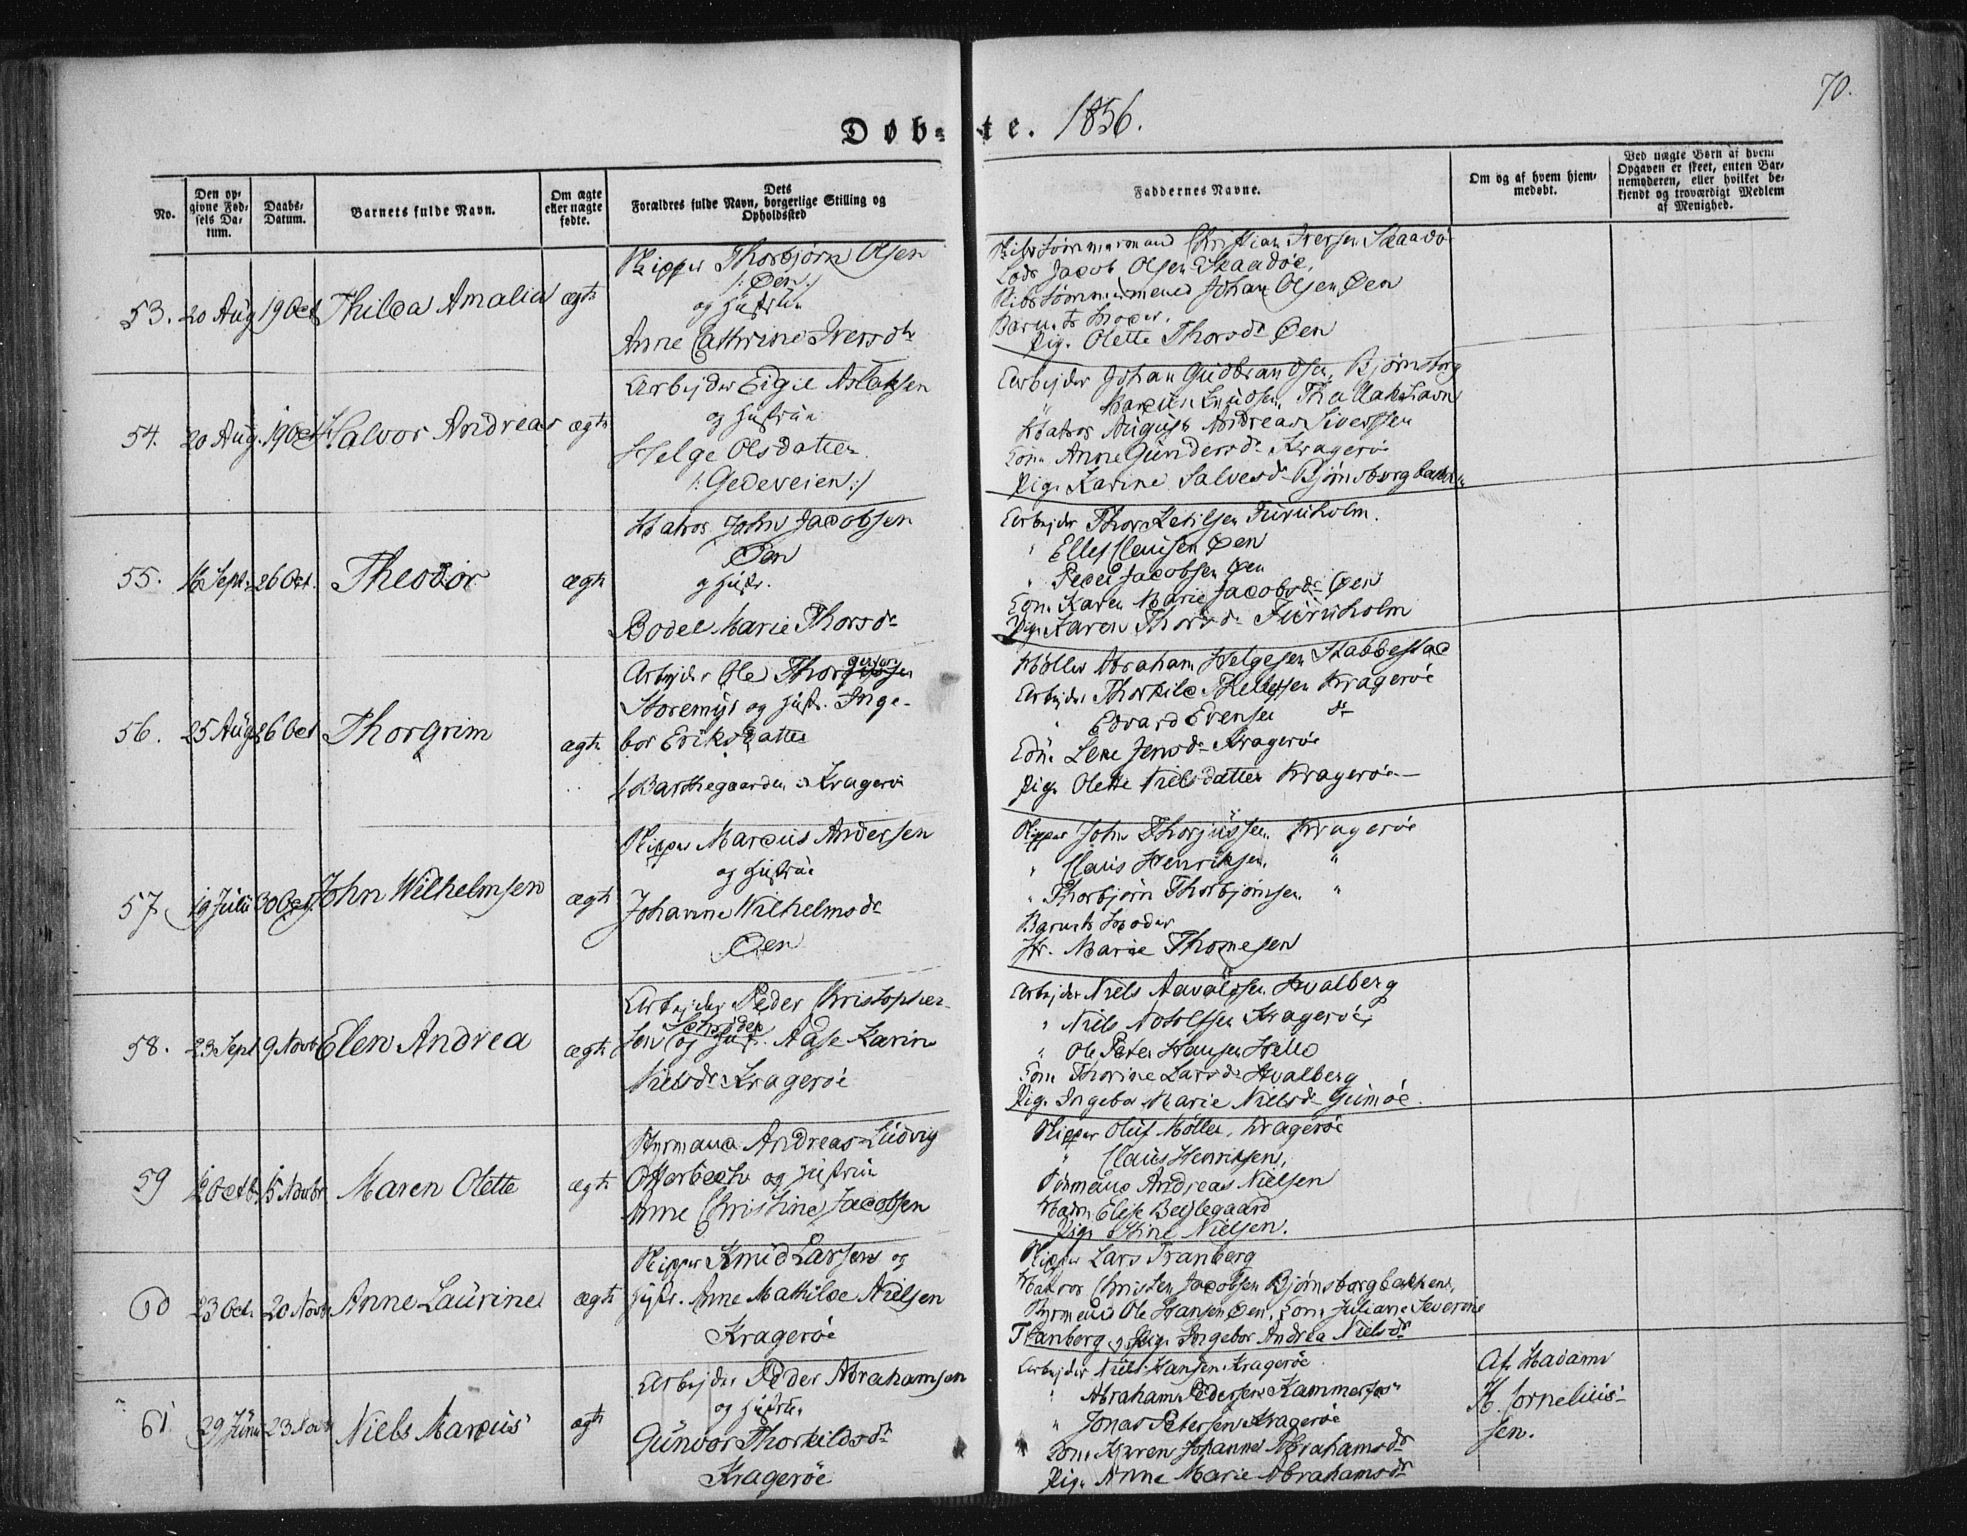 70.
Døb- te. 1856.
No.
Den op-
givne Fød-
sels Da-
tum.
Daabs-
Datum.
Barnets fulde Navn.
Om ægte
eller uægte
fødte.
Dets
Forældres fulde Navn, borgerlige Stilling og
Opholdssted
Faddernes Navne.
Om og af hvem hjem-
medøbt.
Ved uægte Børn af hvem
Opgaven er skeet, enten Bar-
nemoderen, eller hvilket be-
kjendt og troværdigt Medlem
af Menighed.
53. 20 Aug 19 Oct Thilda Amalia ægte
Skipper Thorbjørn Olsen
/:Øen:/
og Hustrue
Anne Cathrine Iversdtr
Skibstømmermand Christian Iversen Skaadø
Lods Jacob Olsen Skaadøe,
Skibstømmermand Johan Olsen Øen
Barnets Moder.
Pig. Olette Thorsdr Øen
54. 20 Aug. 19 Oct Halvor Andreas ægte
Arbejder Eigil Aslaksen
og Hustrue
Helge Olsdatter
/:Gedeveien:/
Arbejder Johan Gudbrandsen, Bjørnsborg
" Knudsen,
Matros August Andreas Siversen
Kone Anne Gundersdr Kragerø
Pige Karine Salvesdr Bjørnsborgbakken
55. 16 Sept. 26 Oct. Theodor ægte
Matros John Jacobsen
Øen
og Hustr.
Bodel Marie Thorsdr
Arbejder Thor Ketilsen Furuholm.
" Ellef Clausen Øen
" Peder Jacobsen Øen
Kone Karen Marie Jacobsdr Øen
Pige Karen Thorsdr Furuholm
56. 25 Aug 26 Oct Thorgrim ægte
Arbejder Ole Thorgersen
Storemyr og Hustr. Inge-
bor Eriksdatter
/Barthegaarden i Kragerø
Møller Abraham Helgesen Stabbestad
Arbejder Thorkild Kragerøe
" Edvard Evensen do
Kone Lene Jensdr Kragerøe
Pige Olette Nielsdatter Kragerøe
57 19 Juli 30 Oct. John Wilhelmsen ægte
Skipper Marcus Andersen
og Hustrue
Johanne Wilhelmsdr
Øen
Skipper John Thorjussen Kragerøe
" Claus Henriksen, "
" Thorbjørn Thorbjørnsen "
Barnets Moder
Fr. Marie Thomesen
58. 23 Sept 9 Novb Elen Andrea ægte
Arbejder Peder Christopher-
sen og Hustr. Aase Karin
Nielsdr Kragerøe
Arbejder Niels Aavaldsen Hvalberg
" Niels Adolfsen Kragerøe,
" Ole Peter Hansen Helle
Kone Thorine Larsdr Hvalberg
Pige Ingebor Marie Nielsdr Gumøe.
59 12 Octb 15 Novbr Maren Olette ægte
Styrmand Andreas Ludvig
Otterbech og Hustrue
Anne Christine Jacobsen
Skipper Oluf Møller, Kragerøe
" Claus Henriksen,
Styrmand Andreas Nielsen
Madm Elise Bejlegaard
Pige Stine Nielsen.
60 23 Oct. 20 Novb Anne Laurine ægte
Skipper Knud Larsen og
Hustr. Anne Mathilde Nielsen
Kragerøe
Skipper Lars Tranberg
Matros Christen Jacobsen Bjørnsborgbakken,
Styrmand Ole Hansen Øen, Kone Juliane Severine
Tranberg og Pige Ingebor Andrea Nielsdr
61. 29 Juni 23 Novb Niels Marcus ægte
Arbejder Peder Abrahamsen
og Hustrue
Gunvor Thorkildsdtr
Kragerøe
Arbejder Niels Hansen Kragerøe.
" Abraham Pedersen Kammerfos
" Jonas Petersen Kragerøe
Kone Karen Johanne Abrahamsdr
Pige Anne Marie Abrahamsdr
Af Madame
K. Cornelius-
sen.